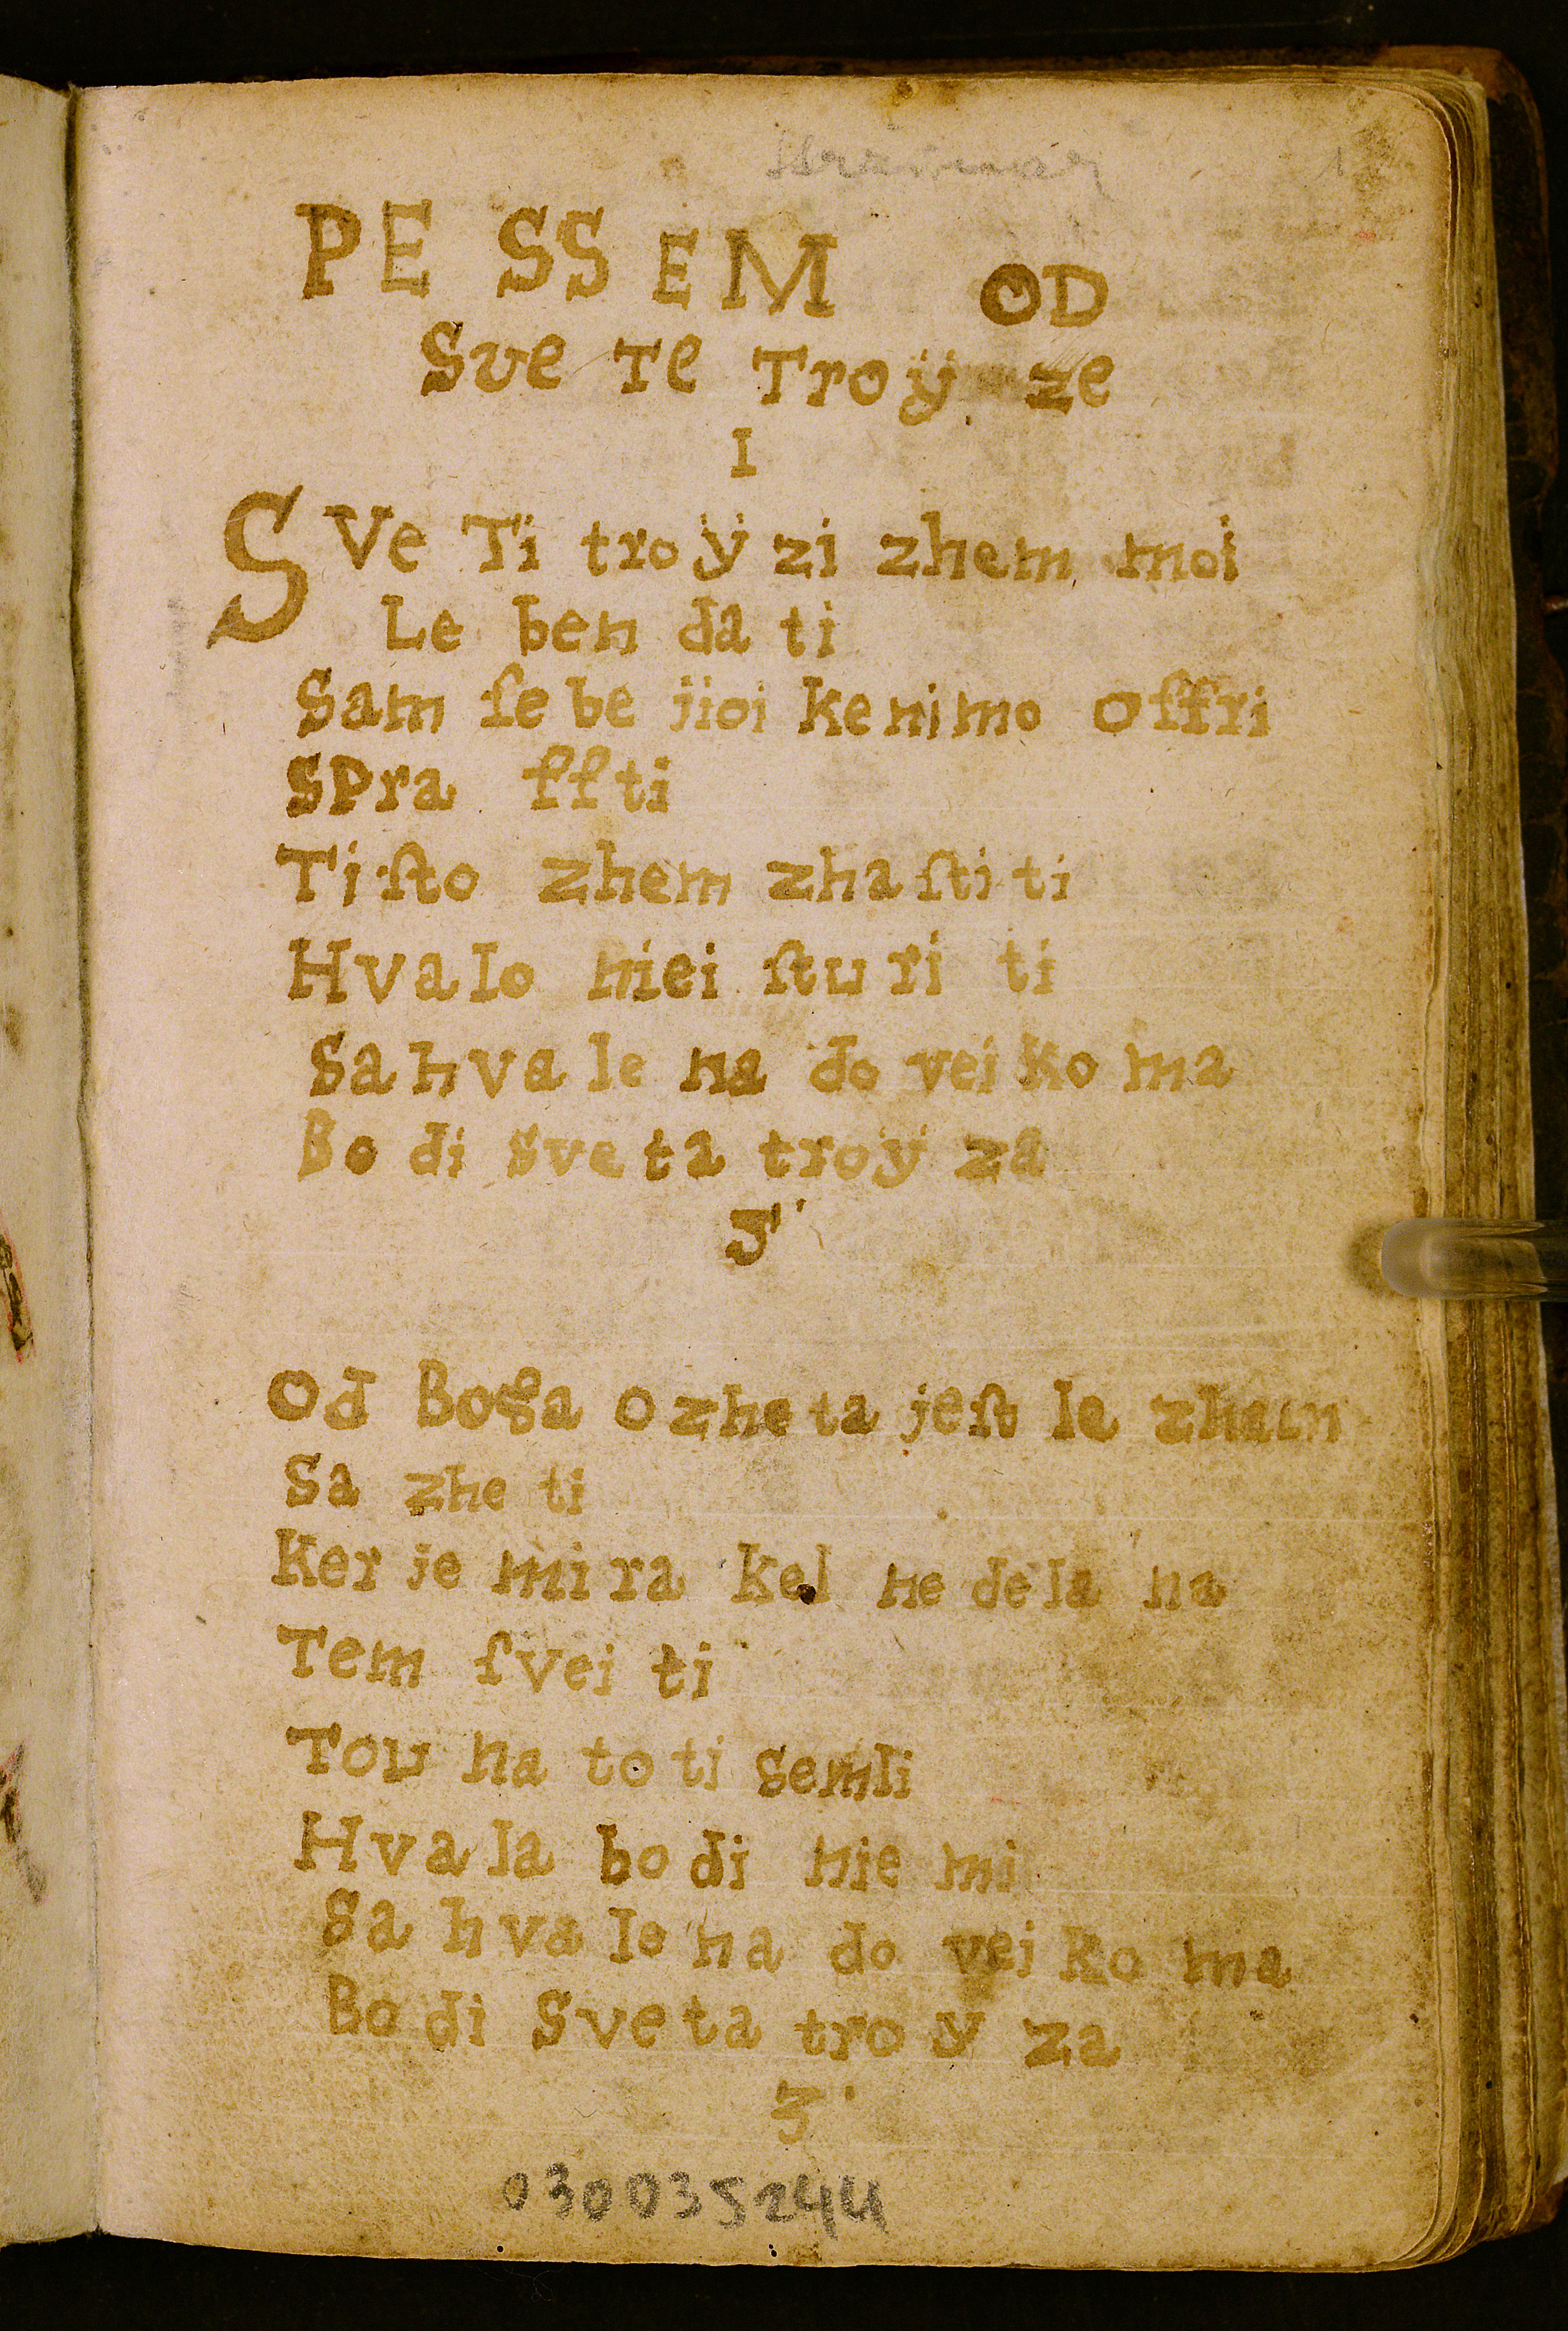 PE SS EM OD
Sve Te Troÿ ze
I
SVe Ti troÿ zi zhem moi
Le ben da ti
Sam ſe be jioi ke nimo offri
SPra ſſti
Ti ſto zhem zha ſti ti
Hvalo niei ſtu ri ti
Sa hva le na do vei ko ma
Bo di sve ta troÿ za
3
Od Boga ozhe ta jeſt le zham
Sa zhe ti
Ker je mi ra kel ne de la na
Tem ſvei ti
Tou na to ti semli
Hva la bo di nie mi
Sa hva le na do vei ko ma
Bo di Sve ta tro y za
3
030035244